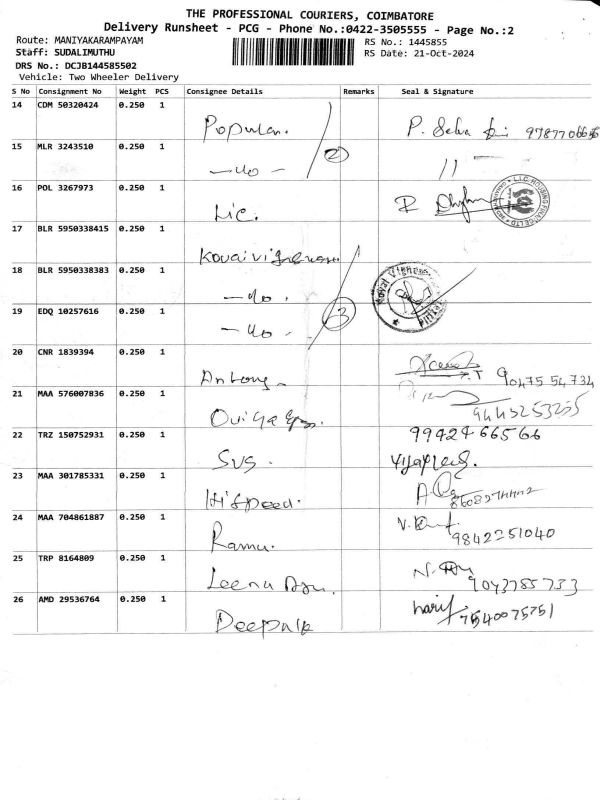 THE PROFESSIONAL COURIERS, COIMBATORE
Delivery Runsheet - PCG - Phone No.:0422-3505555 - Page No.:2
Route: MANIYAKARAMPAYAM
RS No.: 1445855
Staff: SUDALIMUTHU
RS Date: 21-Oct-2024
DRS No.: DCJB144585502
Vehicle: Two Wheeler Delivery
S No Consignment No Weight PCS Consignee Details Remarks Seal & Signature
14 CDM 50320424 0.250 1
Popular. P. Selva
15 MLR 3243510 0.250 1
2
—do— 11
16 POL 3267973 0.250 1
Lic. R
L.I.C. HOUSING FINANCE LTD
17 BLR 5950338415 0.250 1
Kovai
18 BLR 5950338383 0.250 1
—do.
19 EDQ 10257616 0.250 1
3
—do—
20 CNR 1839394 0.250 1
Antony 90475 54734
21 MAA 576007836 0.250 1
9443253255
22 TRZ 150752931 0.250 1
99424 66566
SVS.
23 MAA 301785331 0.250 1
Hi speed.
24 MAA 704861887 0.250 1
Ramu. 9842251040
25 TRP 8164809 0.250 1
Leena 9043785733
26 AMD 29536764 0.250 1
Deepak harif 7540075751